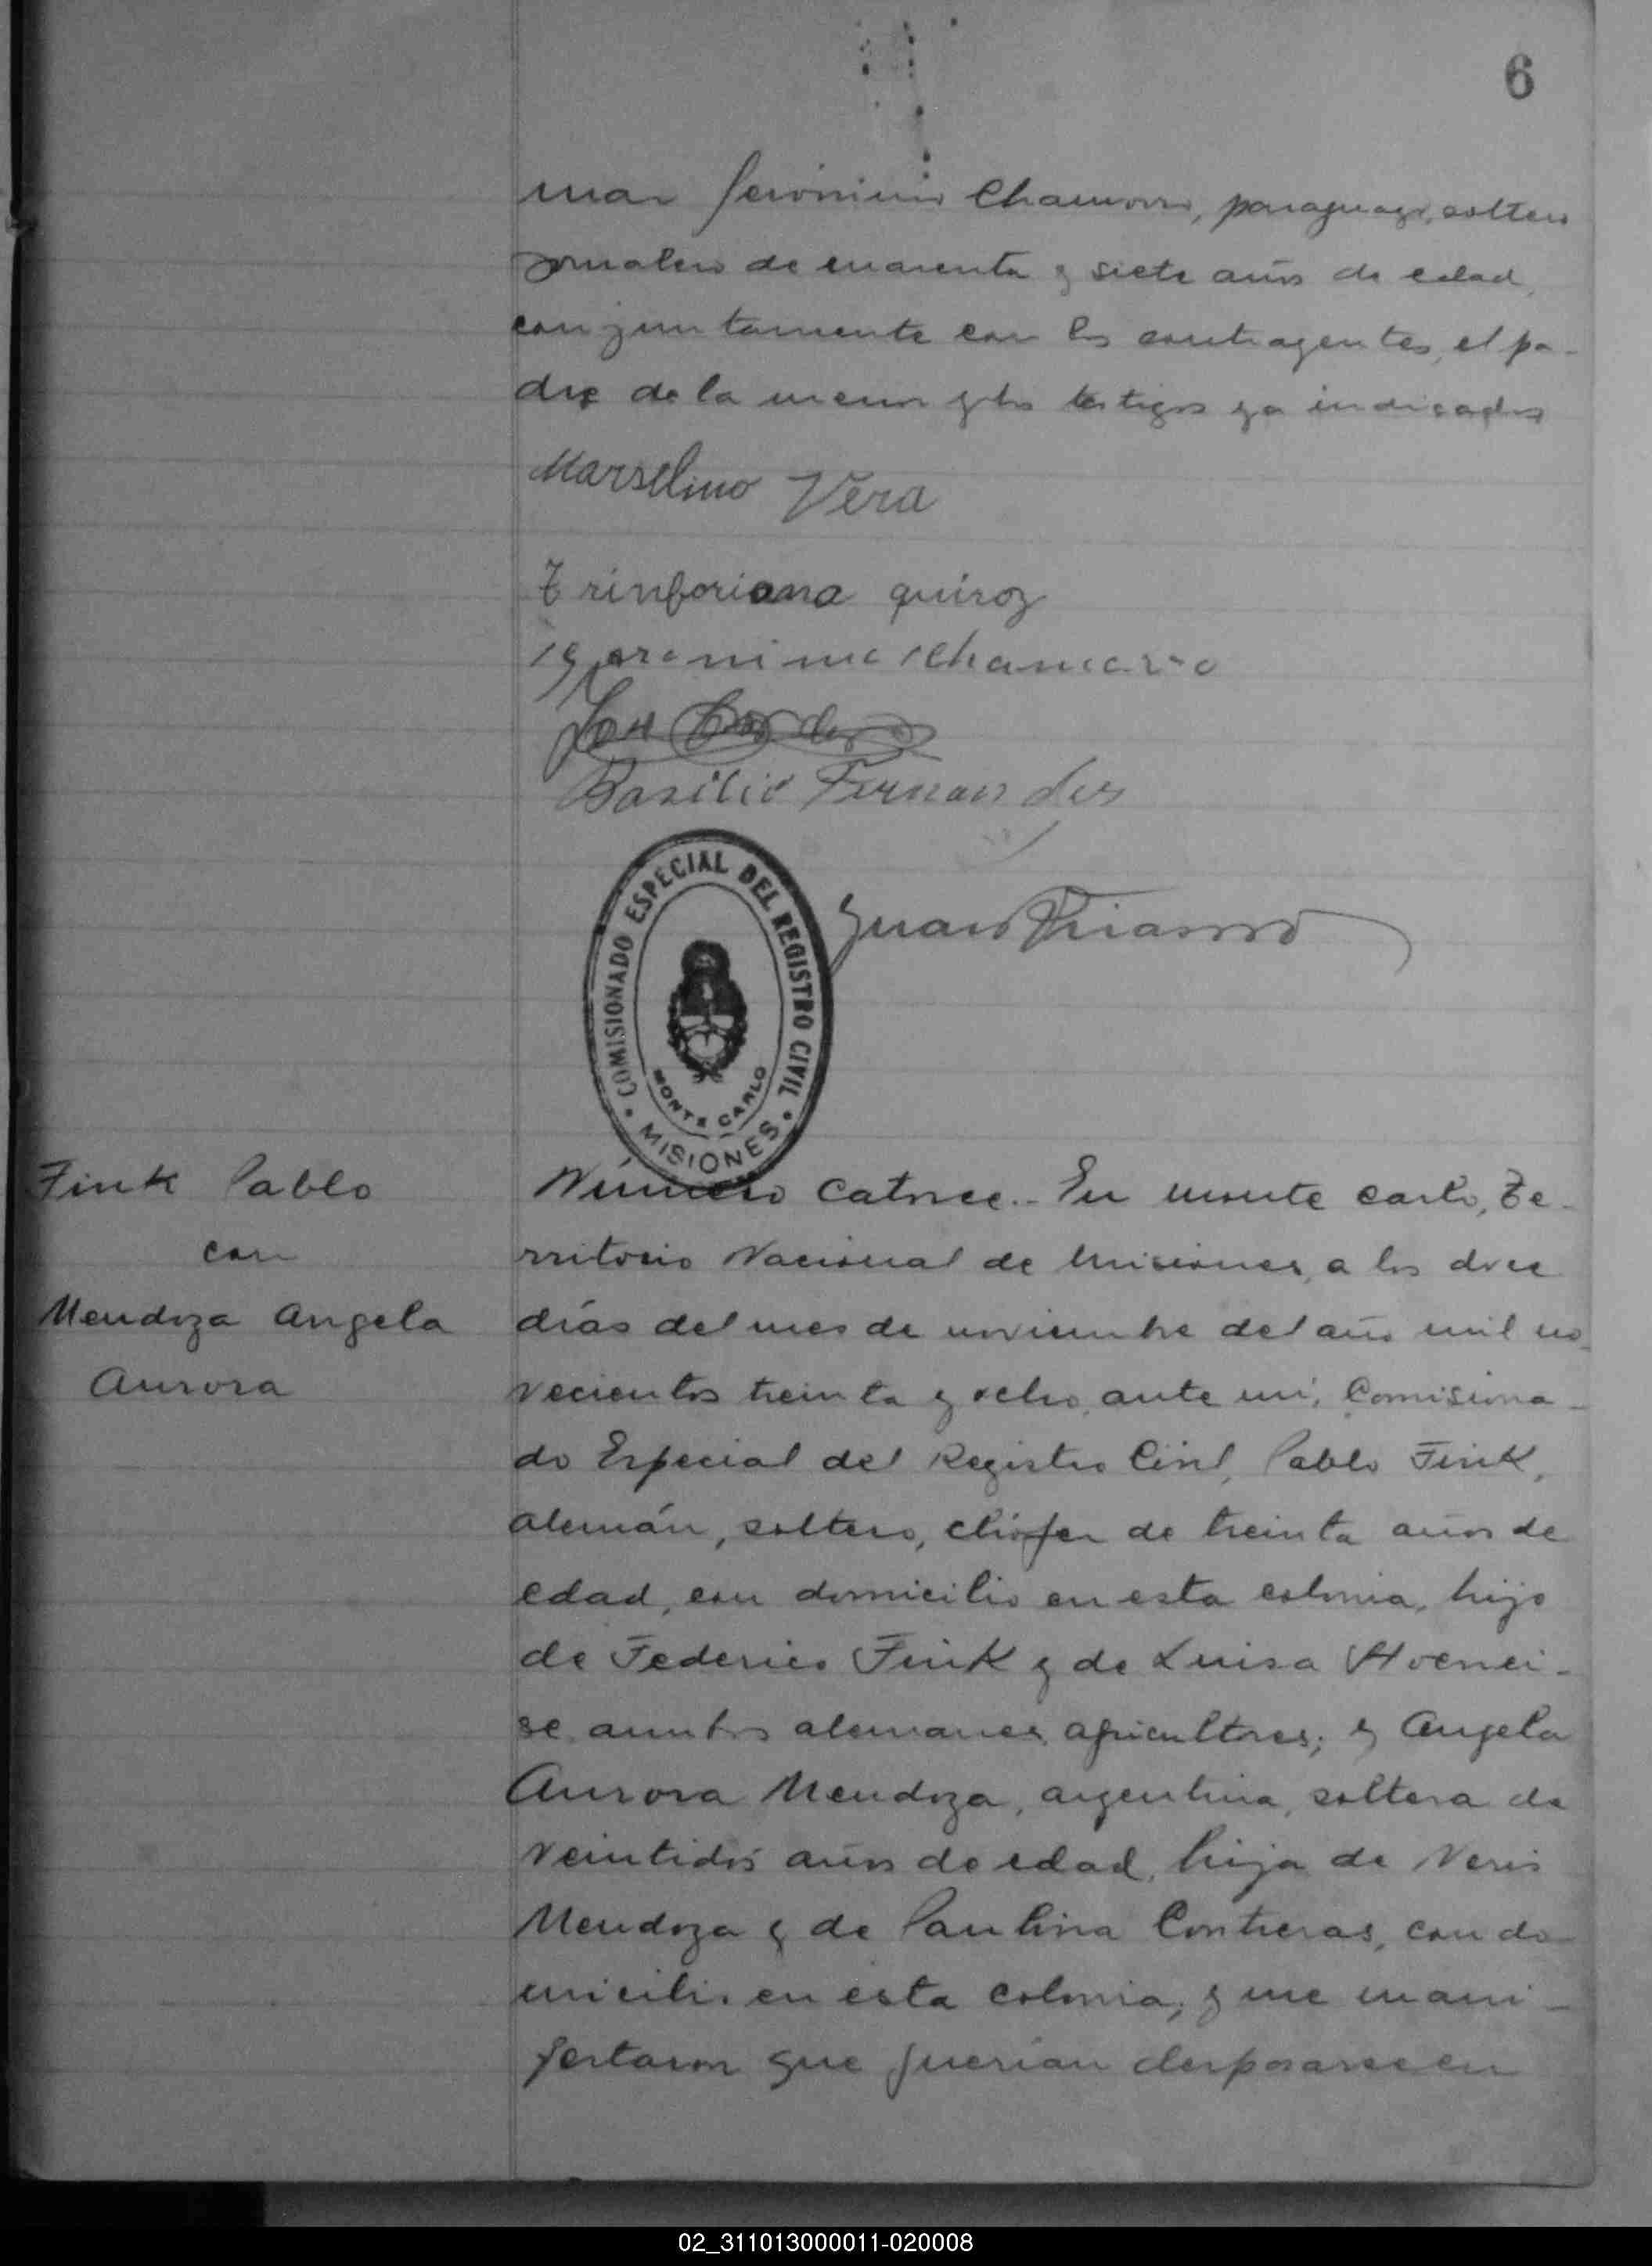 6
mar Jerónimo Chamorro, paraguayo, soltero
jornalero de cuarenta y siete años de edad,
conjuntamente con los contrayentes, el pa-
dre de la menor y los testigos ya indicados
Marselino Vera
quiroz
Basilio Fernandes
COMISIONADO ESPECIAL DEL REGISTRO CIVIL
MONTE CARLO
MISIONES
Juan
Fink Pablo
con
Mendoza Angela
Aurora
Número Catorce.- En Monte Carlo, Te-
rritorio Nacional de Misiones, a los doce
días del mes de noviembre del año mil no-
vecientos treinta y ocho, ante mí, Comisiona-
do Especial del Registro Civil, Pablo Fink,
alemán, soltero, chófer de treinta años de
edad, con domicilio en esta colonia, hijo
de Federico Fink y de Luisa Hoenei-
se, ambos alemanes, agricultores; y Angela
Aurora Mendoza, argentina, soltera de
veintidós años de edad, hija de
Mendoza y de Paulina Contreras, con do-
micilio en esta colonia; y me mani-
festaron que querían desposarse en
02_311013000011-020008